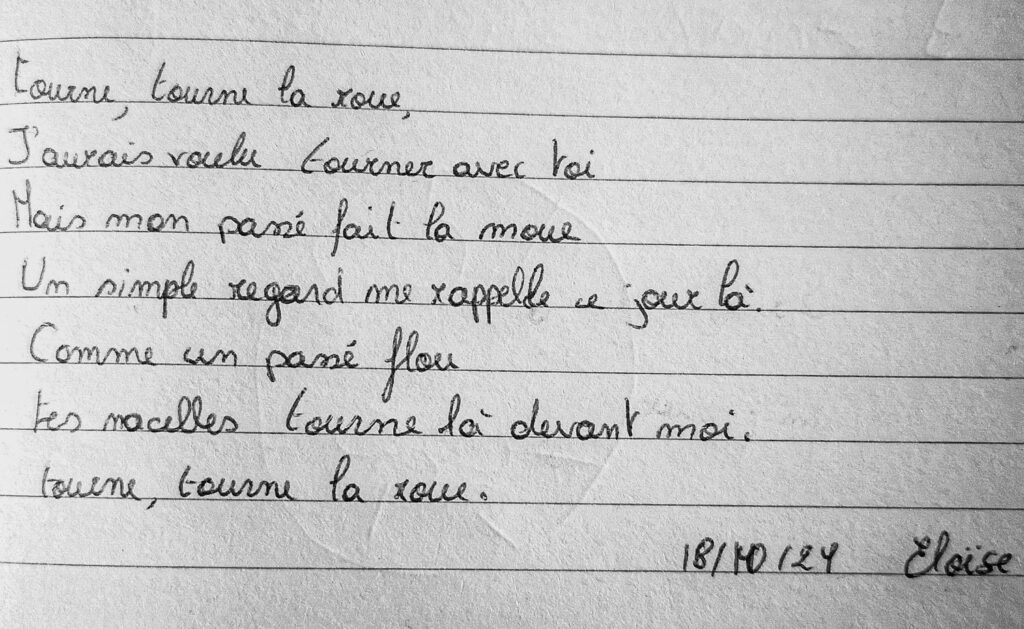 tourne, tourne la roue,
J'aurais voulu tourner avec toi
Mais mon passé fait la moue
Un simple regard me rappelle ce jour là.
Comme un passé flou
tes nacelles tourne là devant moi.
tourne, tourne la roue.
18/10/24 Eloïse